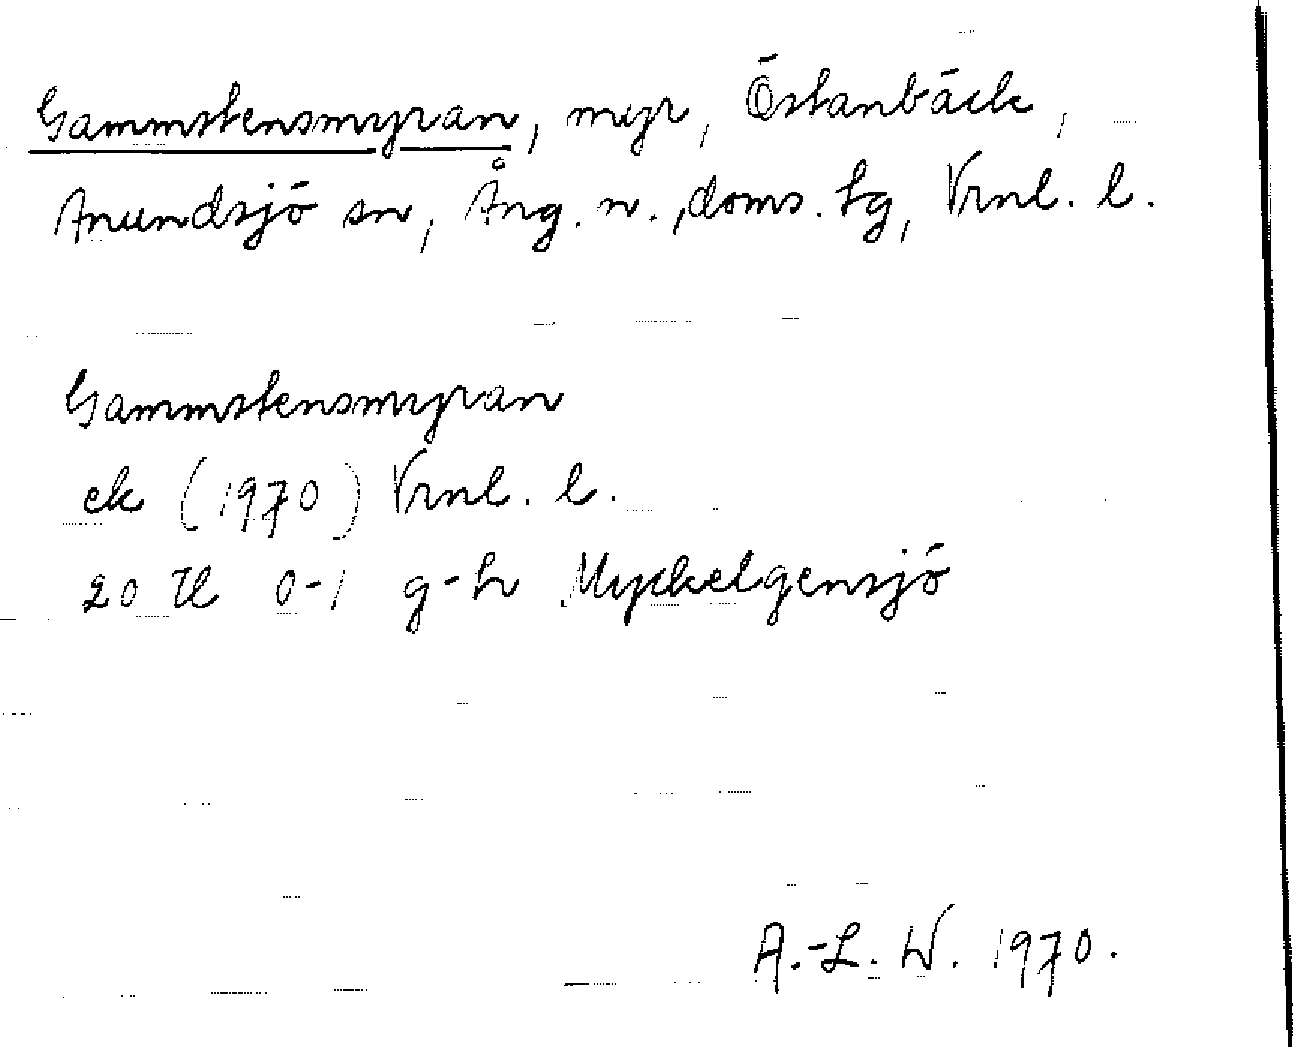 Gammstensmyran, myr, Östanbäck,
Anundsjö sn, Ång. n. doms. tg, Vrnl. l.
Gammstensmyran
ek (1970) Vrnl. l.
20 Il 0-1 g-h Myckelgensjö
A.-L. W. 1970.